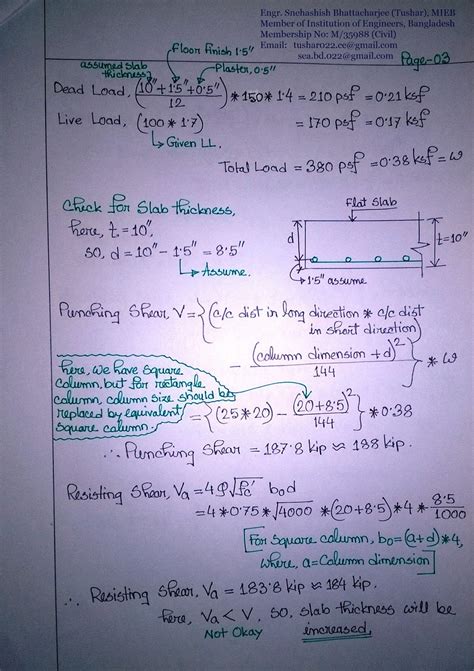 Engr. Snehashish Bhattacharjee (Tushar), MIEB
Member of Institution of Engineers, Bangladesh
Membership No: M/35988 (Civil)
Email: tushar022.ee@gmail.com
sea.bd.022@gmail.com
Page-03
Floor finish 1.5"
assumed slab thickness
Plaster, 0.5"
Dead Load, (10"+1.5"+0.5" / 12) * 150 * 1.4 = 210 psf = 0.21 ksf
Live Load, (100 * 1.7) = 170 psf = 0.17 ksf
Given LL.
Total Load = 380 psf = 0.38 ksf = w
Check for slab thickness,
here, t = 10",
so, d = 10" - 1.5" = 8.5"
Assume.
Flat slab
d
t=10"
1.5" assume
Punching Shear, V = {(c/c dist in long direction * c/c dist
in short direction)
- (column dimension + d)² / 144} * w
here, we have square
column, but for rectangle
column, column size should be
replaced by equivalent
square column.
= {(25*20) - (20+8.5)² / 144} * 0.38
∴ Punching Shear = 187.8 kip ≈ 188 kip.
Resisting Shear, Va = 4φ√fc' bod
= 4 * 0.75 * √4000 * (20+8.5) * 4 * 8.5 / 1000
[For square column, bo = (a+d)*4,
where, a = Column dimension]
∴ Resisting shear, Va = 183.8 kip ≈ 184 kip.
here, Va < V, so, slab thickness will be
Not Okay
increased.